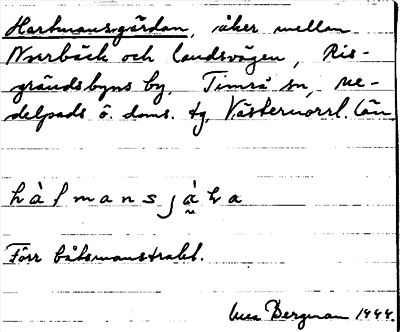 Hartmansgärdan, åker mellan
Norrbäck och landsvägen, Ris-
grändsbyns by, Timrå sn, Me-
delpads ö. doms. tg, Västernorrl. län
hàlmansjàka
Förr båtsmanstrakt.
Bergman 1944.